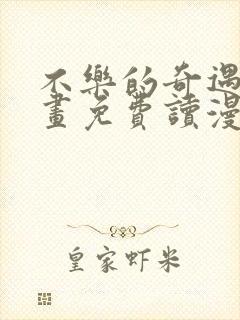 不樂的奇遇
畫免費讀漫
皇家虾米